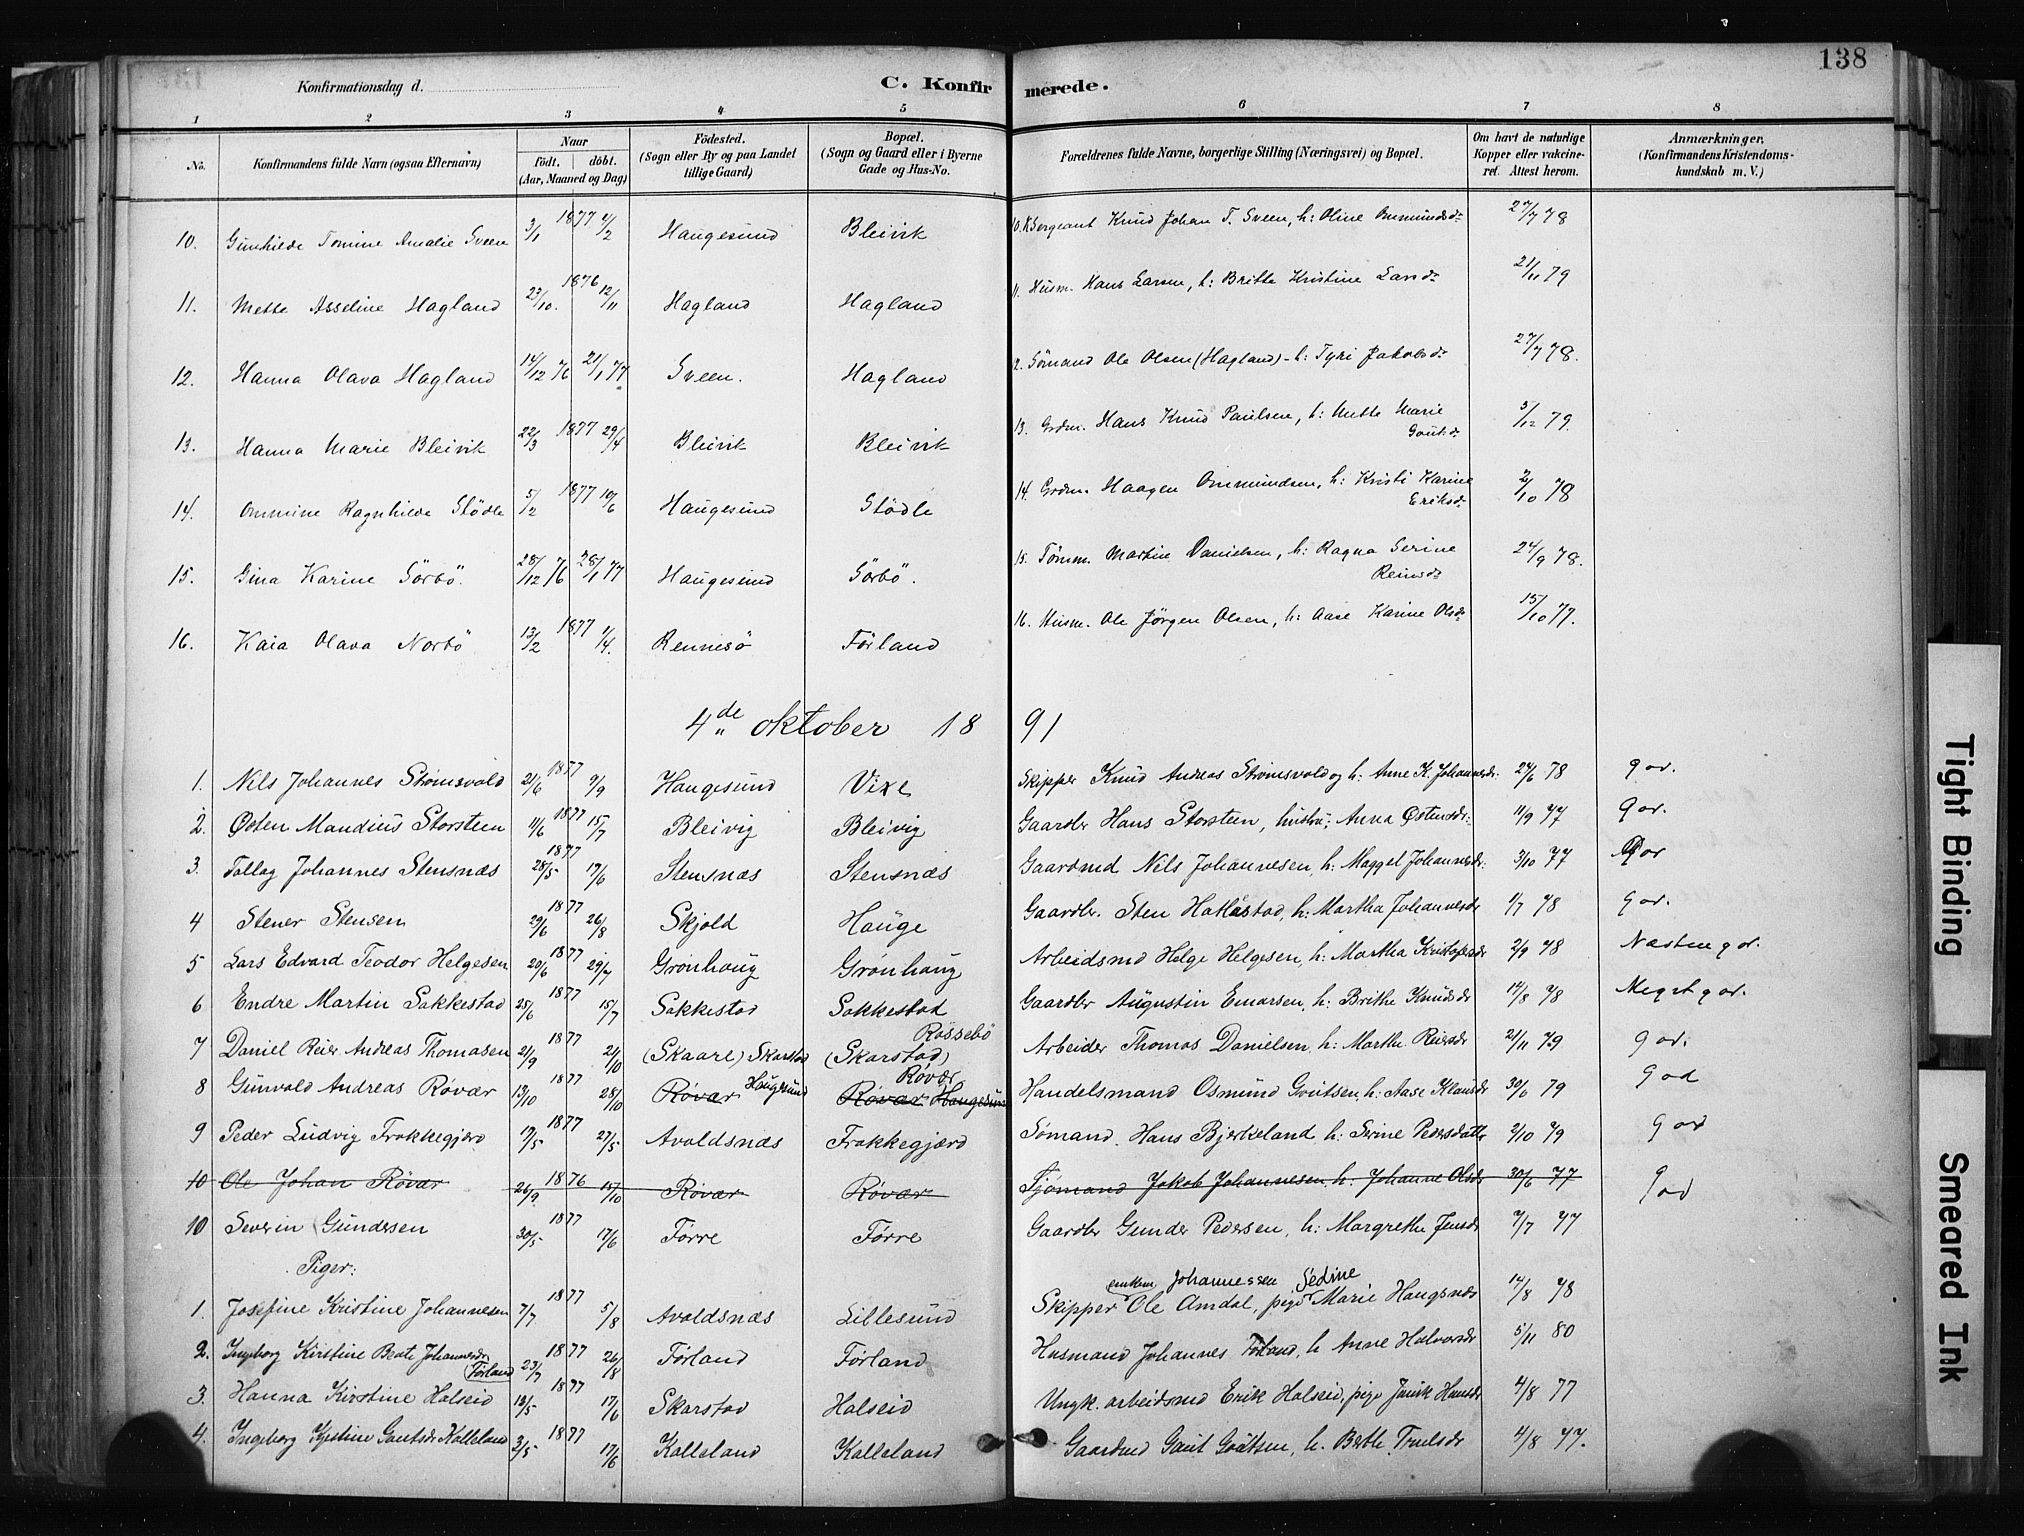 138
Konfirmationsdag d. C. Konfirmerede.
1 2 3 4 5 6 7 8
No. Konfirmandens fulde Navn (ogsaa Efternavn) Naar født. døbt. (Aar, Maaned og Dag) Födested. (Sogn eller By og paa Landet tillige Gaard) Bopæl. (Sogn og Gaard eller i Byerne Gade og Hus-No. Forældrenes fulde Navne, borgerlige Stilling (Næringsvei) og Bopæl. Om havt de naturlige Kopper eller vakcineret. Attest herom. Anmærkninger. (Konfirmandens Kristendomskundskab m. V.)
10. Gunhilde Tomine Amalie Sveen 3/1 1877 4/2 Haugesund Bleivik 10. Sergeant Knud Johan T. Sveen, h: Oline Ommundsd: 27/7 78
11. Mette Asseline Hagland 23/10. 1876 12/11 Hagland Hagland 11. Husm. Hans Larsen, h: Britte Kristine Larsd: 21/11 79
12. Hanna Olava Hagland 14/12 76 21/1 77 Sveen. Hagland 12. Sømand Ole Olsen (Hagland) - h: Tyri Jakobsd: 27/7 78.
13. Hanna Marie Bleivik 22/3 1877 29/4 Bleivik Bleivik 13. Grdm. Hans Knud Paulsen, h: Mette Marie Gautsd: 5/12 79.
14. Ommine Ragnhilde Stödle 5/2 1877 10/6 Haugesund Stödle 14. Grdm. Haagen Ommundsen, h: Kristi Karine Eriksd: 2/10 78
15. Gina Karine Sörbö. 28/12 76 28/1 77 Haugesund Sörbö. 15. Tømm. Martin Danielsen, h: Ragna Serine Reinsd: 24/9 78.
16. Kaia Olava Norbö 13/2 1877 1/4. Rennesö Förland 16. Husm. Ole Jörgen Olsen, h: Aase Karine Olsd: 15/10 77.
4de oktober 1891
1. Nils Johannes Strømsvold 21/6 1877 9/9 Haugesund Vixe Skipper Knud Andreas Strømsvold og h: Anne K. Johannesdr: 24/6 78 god.
2. Østen Mandius Storsteen 11/6 1877 15/7 Bleivig Bleivig Gaardbr Hans Storsteen, hustru; Anna Østensdr: 11/9 77 god.
3. Tollag Johannes Stensnæs 28/5 1877 17/6 Stensnæs Stensnæs Gaardmd Nils Johannesen, h: Maggel Johannesdr: 3/10 77 god
4 Stener Stensen 29/6 1877 26/8 Skjold Hauge Gaardbr. Sten Hakastad, h: Martha Johannesdr 1/7 78 god.
5 Lars Edvard Teodor Helgesen 20/6 1877 29/7 Grønhoug Grønhoug Arbeidsmd Helge Helgesen, h: Martha Kristofersdr 2/9 78 Næsten god.
6 Endre Martin Sakkestad 25/6 1877 15/7 Sakkestad Sakkestad Gaardbr Augustin Einarsen, h: Brithe Knudsdr 14/8 78 Meget god.
7 Daniel Reier Andreas Thomasen 21/9 1877 21/10 (Skaare) Skarstad (Skarstad) Røssebö Arbeider Thomas Danielsen, h: Marthe Reiersdr 21/11 79 god.
8 Gunvald Andreas Røvær 13/10 1877 28/10 Røvær Haugesund Røvær Haugesund Røvær Handelsmand Osmund Goutsen, h: Aase Klausdr 30/6 79 god
9 Peder Ludvig Frakkegjerd 17/5 1877 27/5 Avaldsnæs Frakkegjerd Sømand Hans Bjerkeland h: Serine Pedersdatter 2/10 79 god
10 Ole Johan Røvær 26/9 1876 15/10 Røvær Røvær Sjømand Jakob Johannesen h: Johanne Olsdr 30/6 77 god
10 Severin Gundersen 30/5 1877 17/6 Førre Førre Gaardbr Gunder Pedersen, h: Margrethe Jensdr 7/7 77
Piger:
1. Josefine Kristine Johannesen 7/7 1877 5/8 Avaldsnæs Lillesund Skipper enkem. Johannessen Ole Amdal, pige Sedine Marie Haugsnæs 14/8 78
2. Ingeborg Kirstine Beate Johannesdr (Førland) 23/7 1877 26/8 Førland Førland Husmand Johannes Førland, h Anne Halvorsdr 5/11 80
3. Hanna Kirstine Halseid 13/5 1877 17/6 Skarstad Halseid Ungk. arbeidsmd Erik Halseid, pige Janik Hansdr 4/8 77
4. Ingeborg Kjestine Gautsdr Kalleland 3/5 1877 17/6 Kalleland Kalleland Gaardmd Gaut Goutsen, h. Berthe Truelsdr 4/8 77.
Tight Binding
Smeared Ink